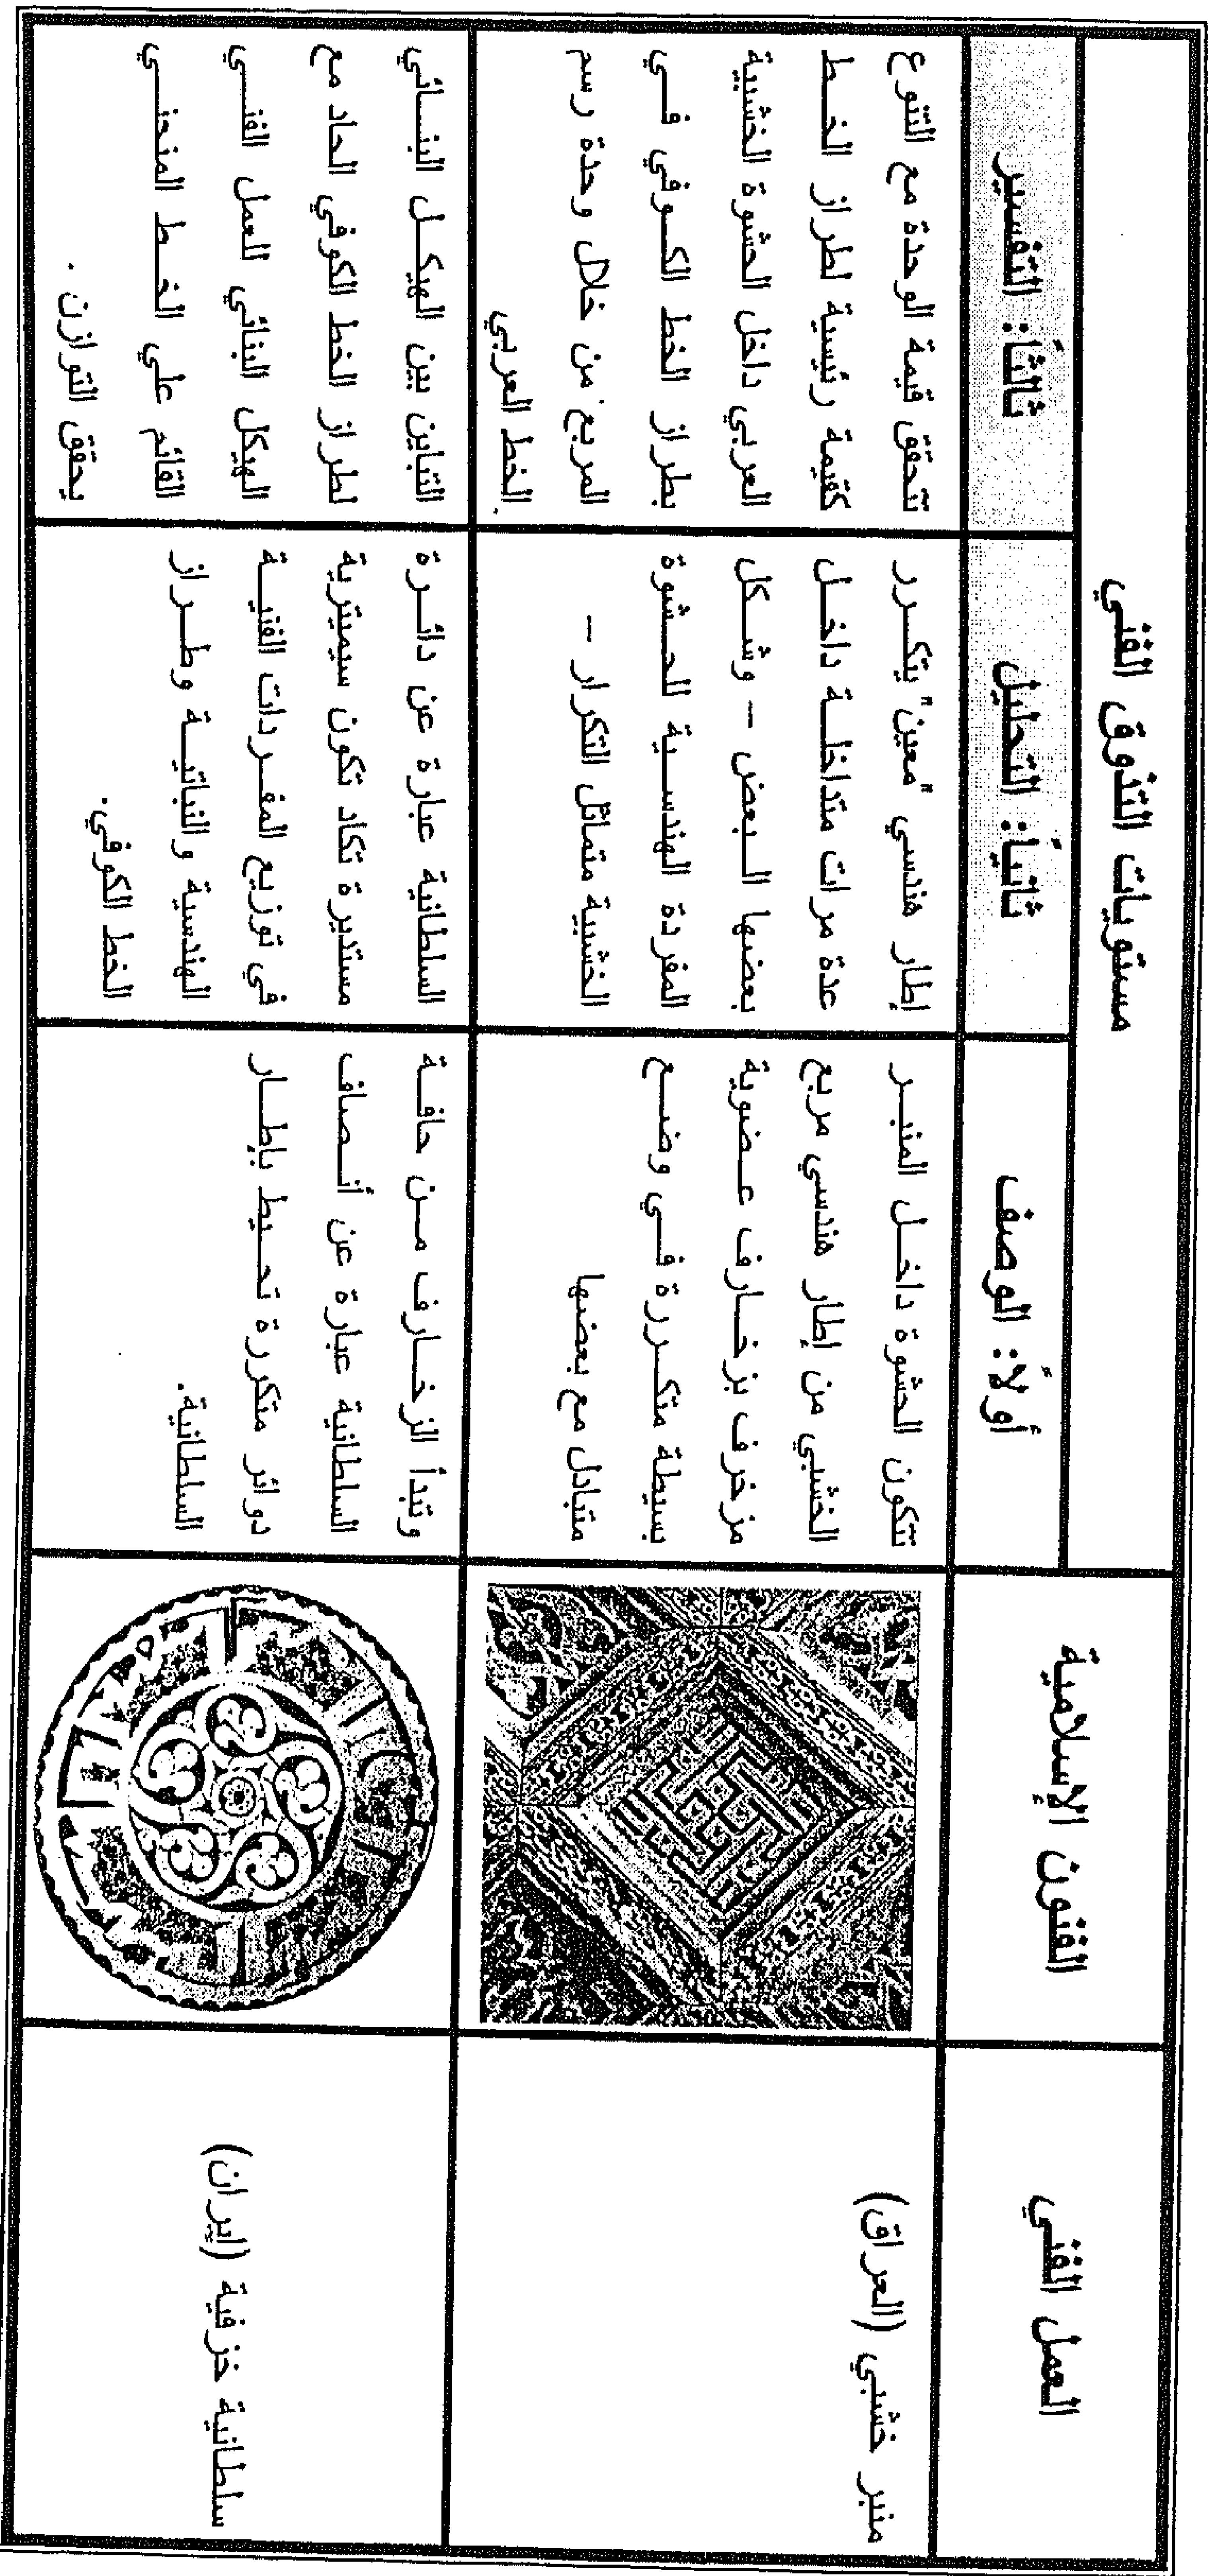 العمل الفني
الفنون الإسلامية
مستويات التذوق الفني
أولاً: الوصف
ثانياً: التحليل
ثالثاً: التفسير
منبر خشبي (العراق)
تتكون الحشوة داخل المنبر
الخشبي من إطار هندسي مربع
مزخرف بزخارف عضوية
بسيطة متكررة في وضع
متبادل مع بعضها
إطار هندسي "معين" يتكرر
عدة مرات متداخلة داخل
بعضها البعض – وشكل
المفردة الهندسية للحشوة
الخشبية متماثل التكرار –
تتحقق قيمة الوحدة مع التنوع
كقيمة رئيسية لطراز الخط
العربي داخل الحشوة الخشبية
بطراز الخط الكوفي في
المربع من خلال وحدة رسم
الخط العربي.
سلطانية خزفية (إيران)
وتبدأ الزخارف من حافة
السلطانية عبارة عن أنصاف
دوائر متكررة تحيط بإطار
السلطانية.
السلطانية عبارة عن دائرة
مستديرة تكاد تكون سيميترية
في توزيع المفردات الفنية
الهندسية والنباتية وطراز
الخط الكوفي.
التباين بين الهيكل البنائي
لطراز الخط الكوفي الحاد مع
الهيكل البنائي للعمل الفني
القائم علي الخط المنحني
يحقق التوازن.